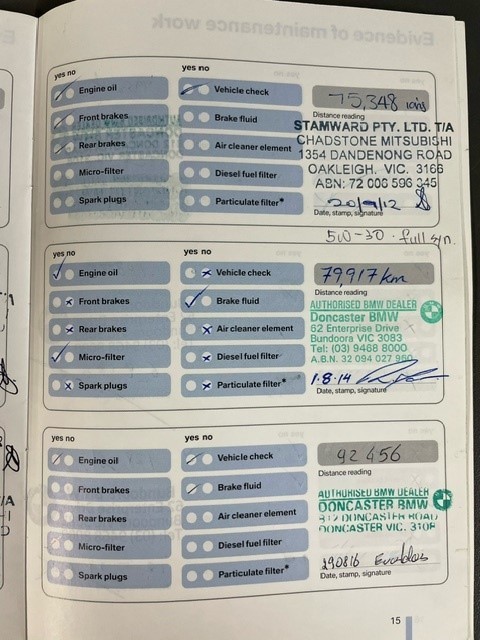 Evidence of maintenance work
yes no
yes no
Engine oil
Vehicle check
75,348 kms
Front brakes
Brake fluid
Distance reading
Rear brakes
Air cleaner element
STAMWARD PTY. LTD. T/A
CHADSTONE MITSUBISHI
1354 DANDENONG ROAD
Micro-filter
Diesel fuel filter
OAKLEIGH. VIC. 3166
ABN: 72 006 596 345
Spark plugs
Particulate filter*
20/9/12
Date, stamp, signature
5W-30 . full syn.
yes no
yes no
Engine oil
Vehicle check
79,917 km
Front brakes
Brake fluid
Distance reading
AUTHORISED BMW DEALER
Doncaster BMW
Rear brakes
Air cleaner element
62 Enterprise Drive
Bundoora VIC 3083
Micro-filter
Diesel fuel filter
Tel: (03) 9468 8000
A.B.N. 32 094 027 980
Spark plugs
Particulate filter*
1.8.14
Date, stamp, signature
yes no
yes no
Engine oil
Vehicle check
92 456
Front brakes
Brake fluid
Distance reading
AUTHORISED BMW DEALER
DONCASTER BMW
Rear brakes
Air cleaner element
812 DONCASTER ROAD
DONCASTER VIC. 3108
Micro-filter
Diesel fuel filter
290816
Spark plugs
Particulate filter*
Date, stamp, signature
15